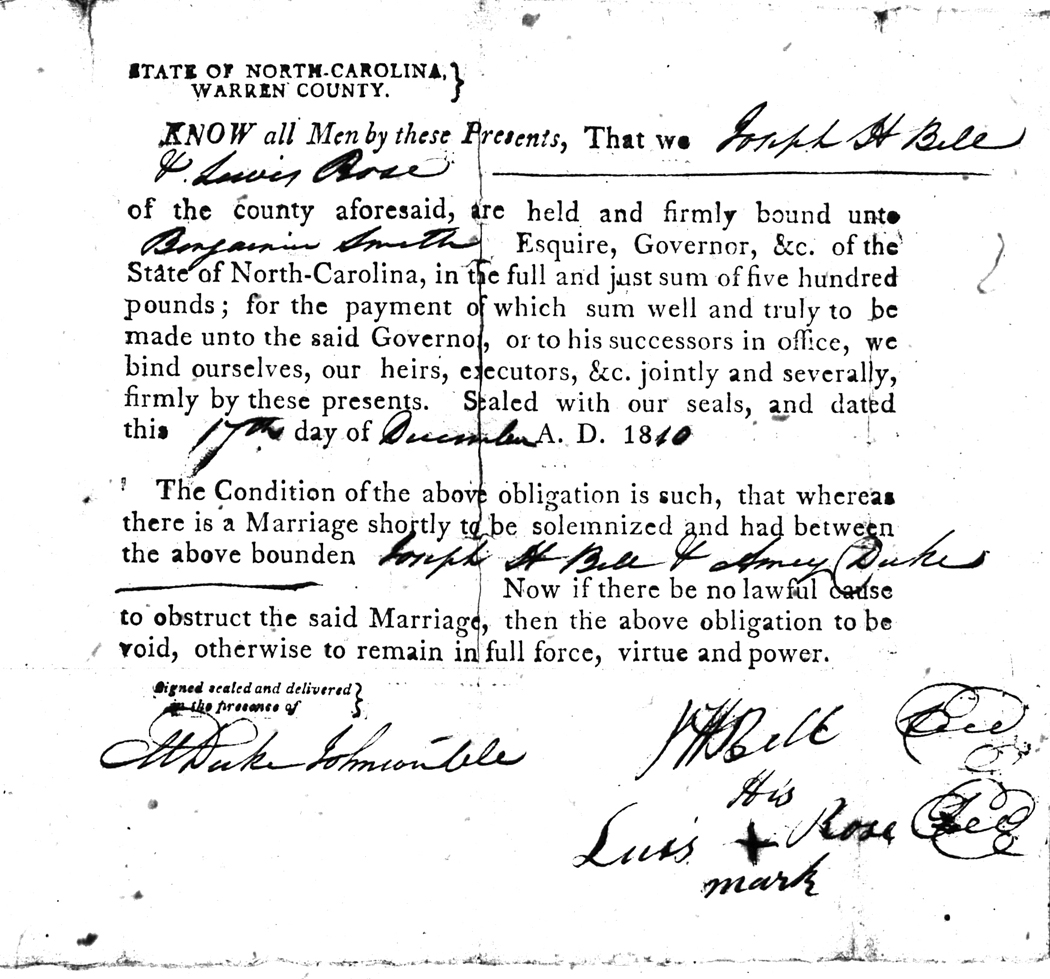 STATE OF NORTH-CAROLINA,
WARREN COUNTY.
KNOW all Men by these Presents, That we Joseph H Bell
& Lewis Rose
of the county aforesaid, are held and firmly bound unto
Benjamin Smith Esquire, Governor, &c. of the
State of North-Carolina, in the full and just sum of five hundred
pounds; for the payment of which sum well and truly to be
made unto the said Governor, or to his successors in office, we
bind ourselves, our heirs, executors, &c. jointly and severally,
firmly by these presents. Sealed with our seals, and dated
this 17th day of December A. D. 1810
The Condition of the above obligation is such, that whereas
there is a Marriage shortly to be solemnized and had between
the above bounden Joseph H Bell & Amey Duke
Now if there be no lawful cause
to obstruct the said Marriage, then the above obligation to be
void, otherwise to remain in full force, virtue and power.
Signed sealed and delivered
in the presence of
M Duke Johnson
J H Bell
His
Luis + Rose
mark